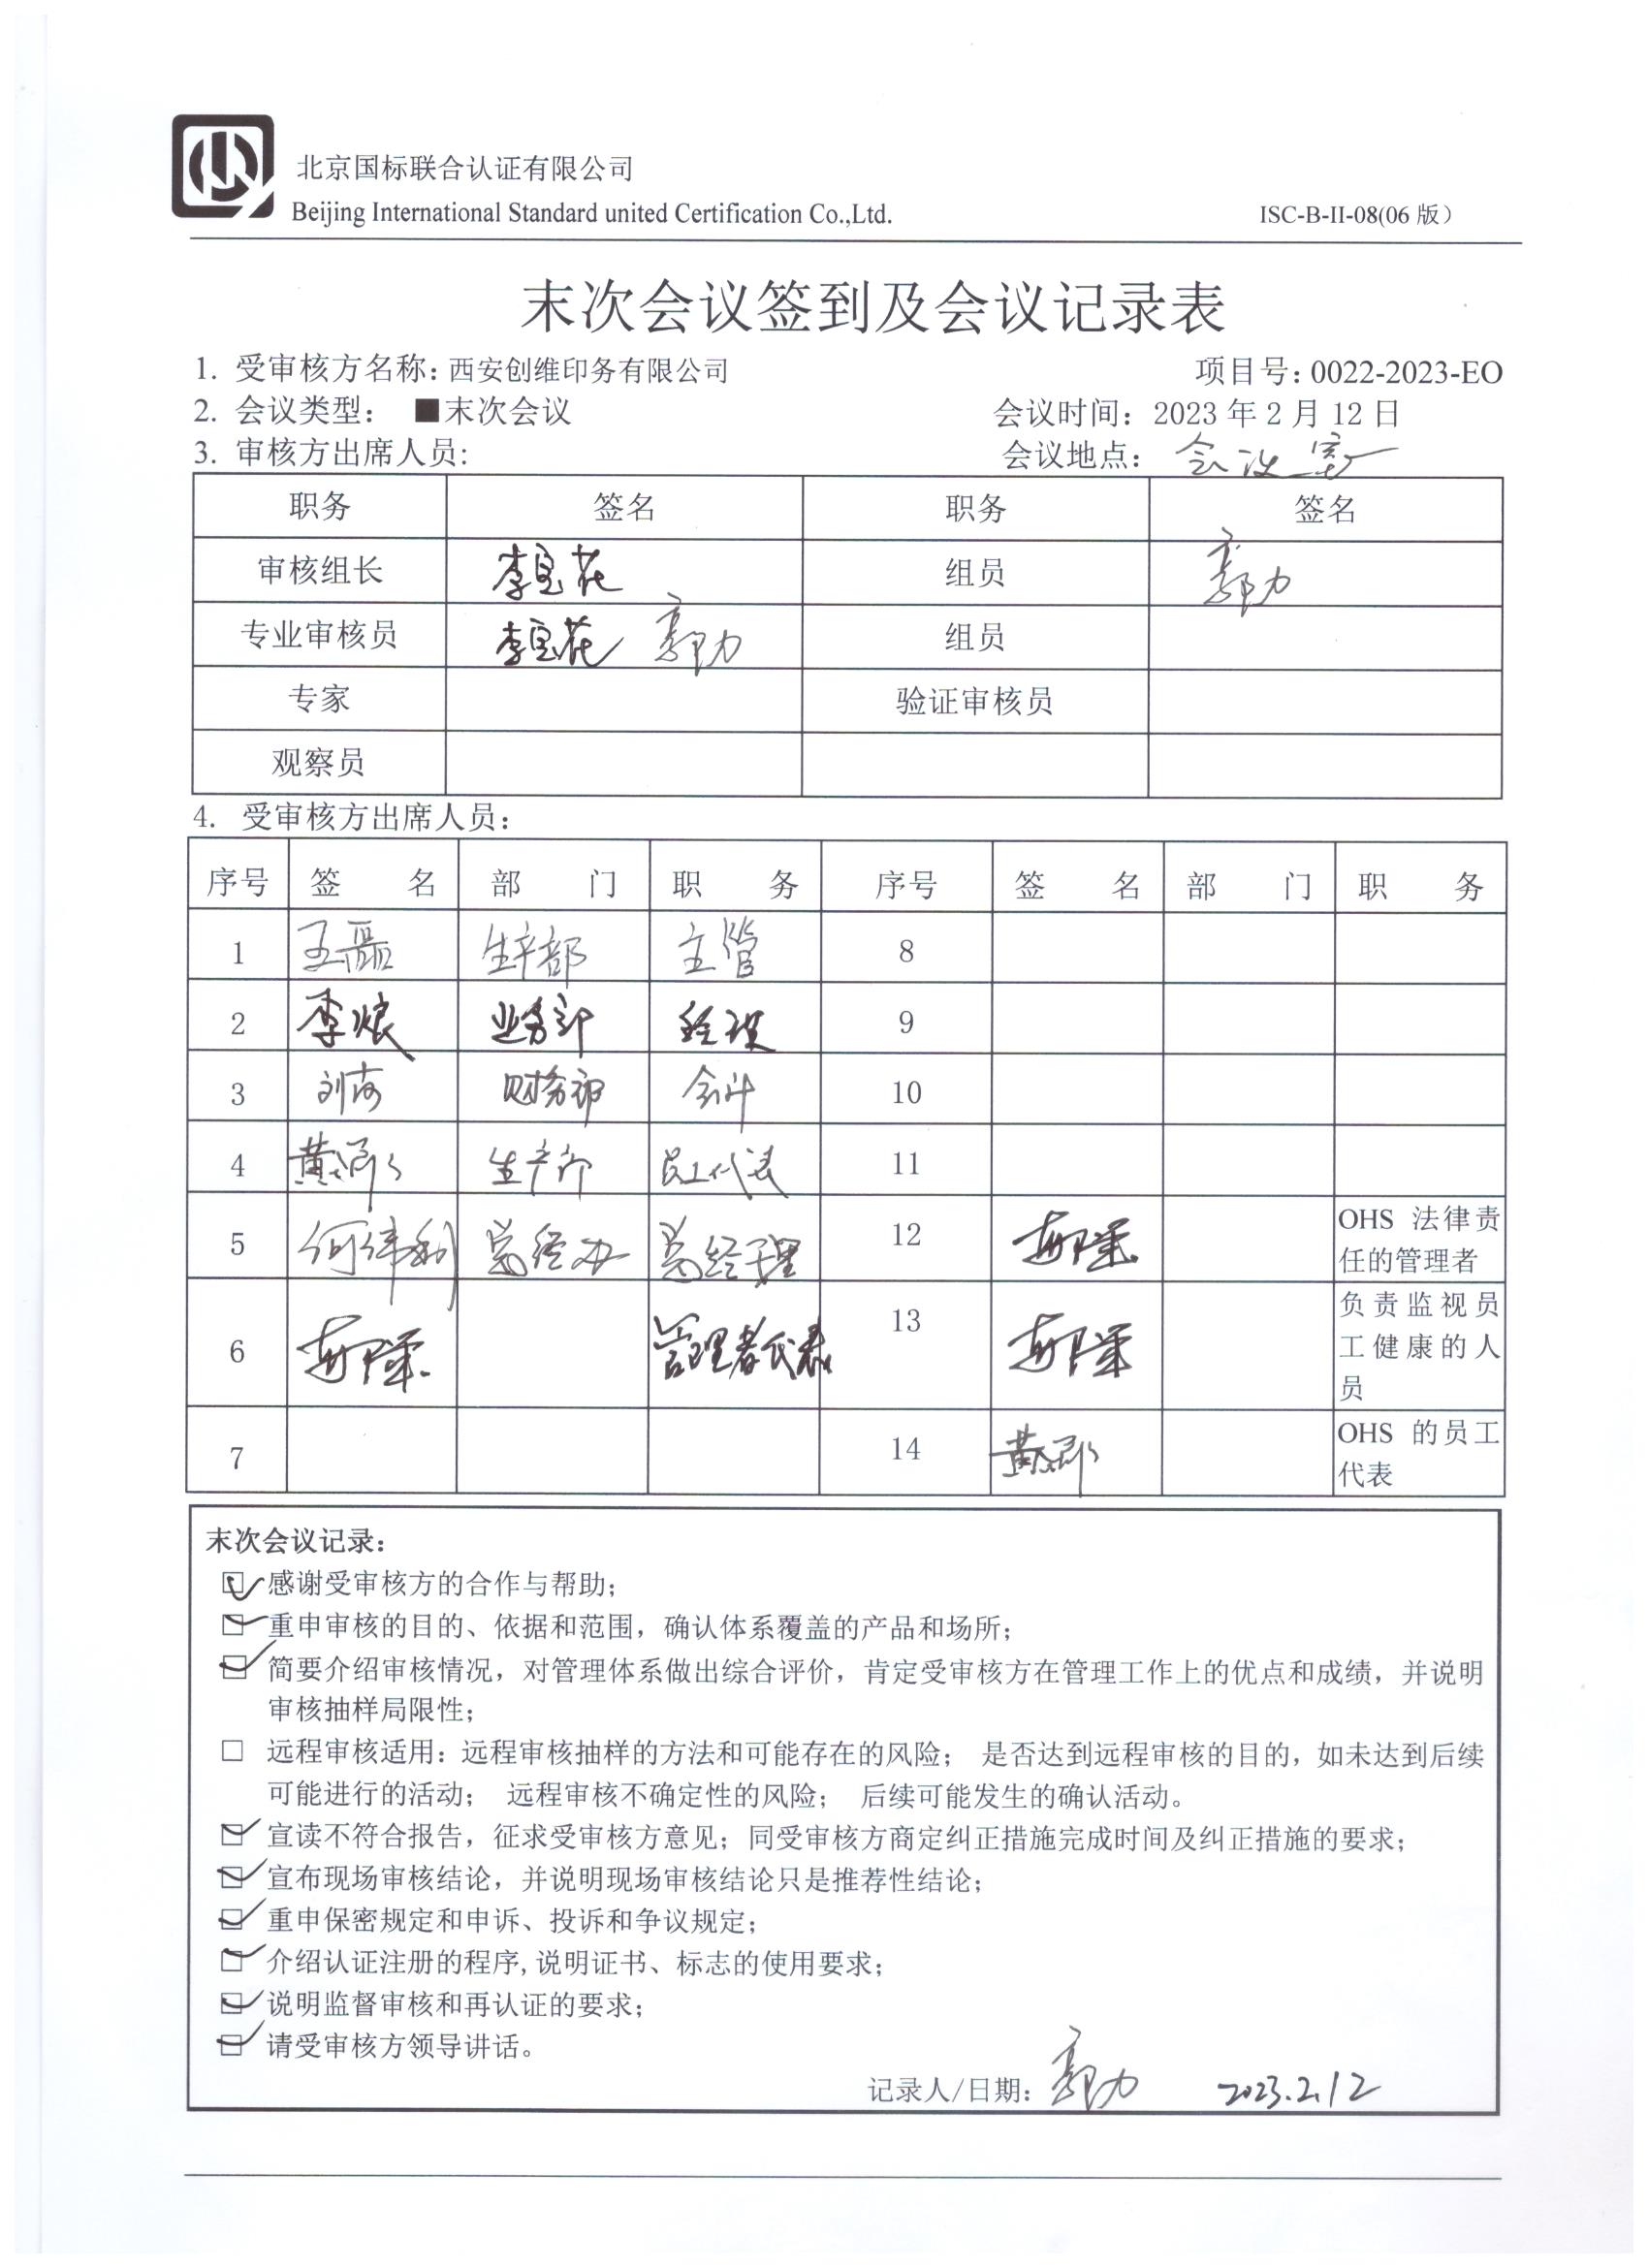 北京国标联合认证有限公司
Beijing International Standard united Certification Co.,Ltd.
ISC-B-II-08(06 版）
末次会议签到及会议记录表
1. 受审核方名称：西安创维印务有限公司 项目号：0022-2023-EO
2. 会议类型： ■末次会议 会议时间：2023 年 2 月 12 日
3. 审核方出席人员: 会议地点： 会议室
职务 签名 职务 签名
审核组长 李宝花 组员 郭力
专业审核员 李宝花 郭力 组员
专家 验证审核员
观察员
4. 受审核方出席人员：
序号 签 名 部 门 职 务 序号 签 名 部 门 职 务
1 王磊 生产部 主管 8
2 李娘 业务部 经理 9
3 财务部 会计 10
4 生产部 员工代表 11
5 何伟利 总经办 总经理 12 OHS 法律责
任的管理者
6 管理者代表 13 负责监视员
工健康的人
员
7 14 OHS 的员工
代表
末次会议记录：
☑感谢受审核方的合作与帮助；
☑重申审核的目的、依据和范围，确认体系覆盖的产品和场所；
☑简要介绍审核情况，对管理体系做出综合评价，肯定受审核方在管理工作上的优点和成绩，并说明
审核抽样局限性；
□ 远程审核适用：远程审核抽样的方法和可能存在的风险； 是否达到远程审核的目的，如未达到后续
可能进行的活动； 远程审核不确定性的风险； 后续可能发生的确认活动。
☑宣读不符合报告，征求受审核方意见；同受审核方商定纠正措施完成时间及纠正措施的要求；
☑宣布现场审核结论，并说明现场审核结论只是推荐性结论；
☑重申保密规定和申诉、投诉和争议规定；
☑介绍认证注册的程序,说明证书、标志的使用要求；
☑说明监督审核和再认证的要求；
☑请受审核方领导讲话。
记录人/日期：郭力 2023.2.12